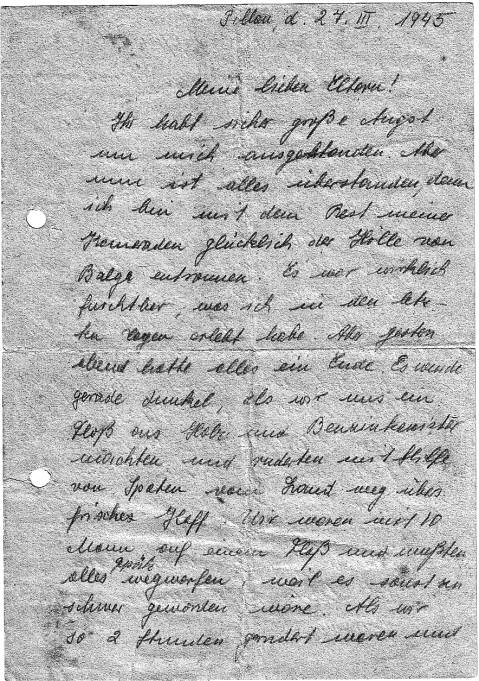 Pillau, d. 27. III. 1945
Meine lieben Eltern!
Ihr habt sicher große Angst
um mich ausgestanden. Aber
nun ist alles überstanden, denn
ich bin mit dem Rest meiner
Kameraden glücklich der Hölle von
Balga entronnen. Es war wirklich
furchtbar, was ich in den letz-
ten Tagen erlebt habe. Aber gestern
abend hatte alles ein Ende. Es wurde
gerade dunkel, als wir uns ein
Floß aus Holz und Benzinkanister
machten und ruderten mit Hilfe
von Spaten vom Land weg übers
frisches Haff. Wir waren mit 10
Mann auf einem Floß und mußten
alles Gepäck wegwerfen, weil es sonst zu
schwer geworden wäre. Als wir
so 2 Stunden gerudert waren und